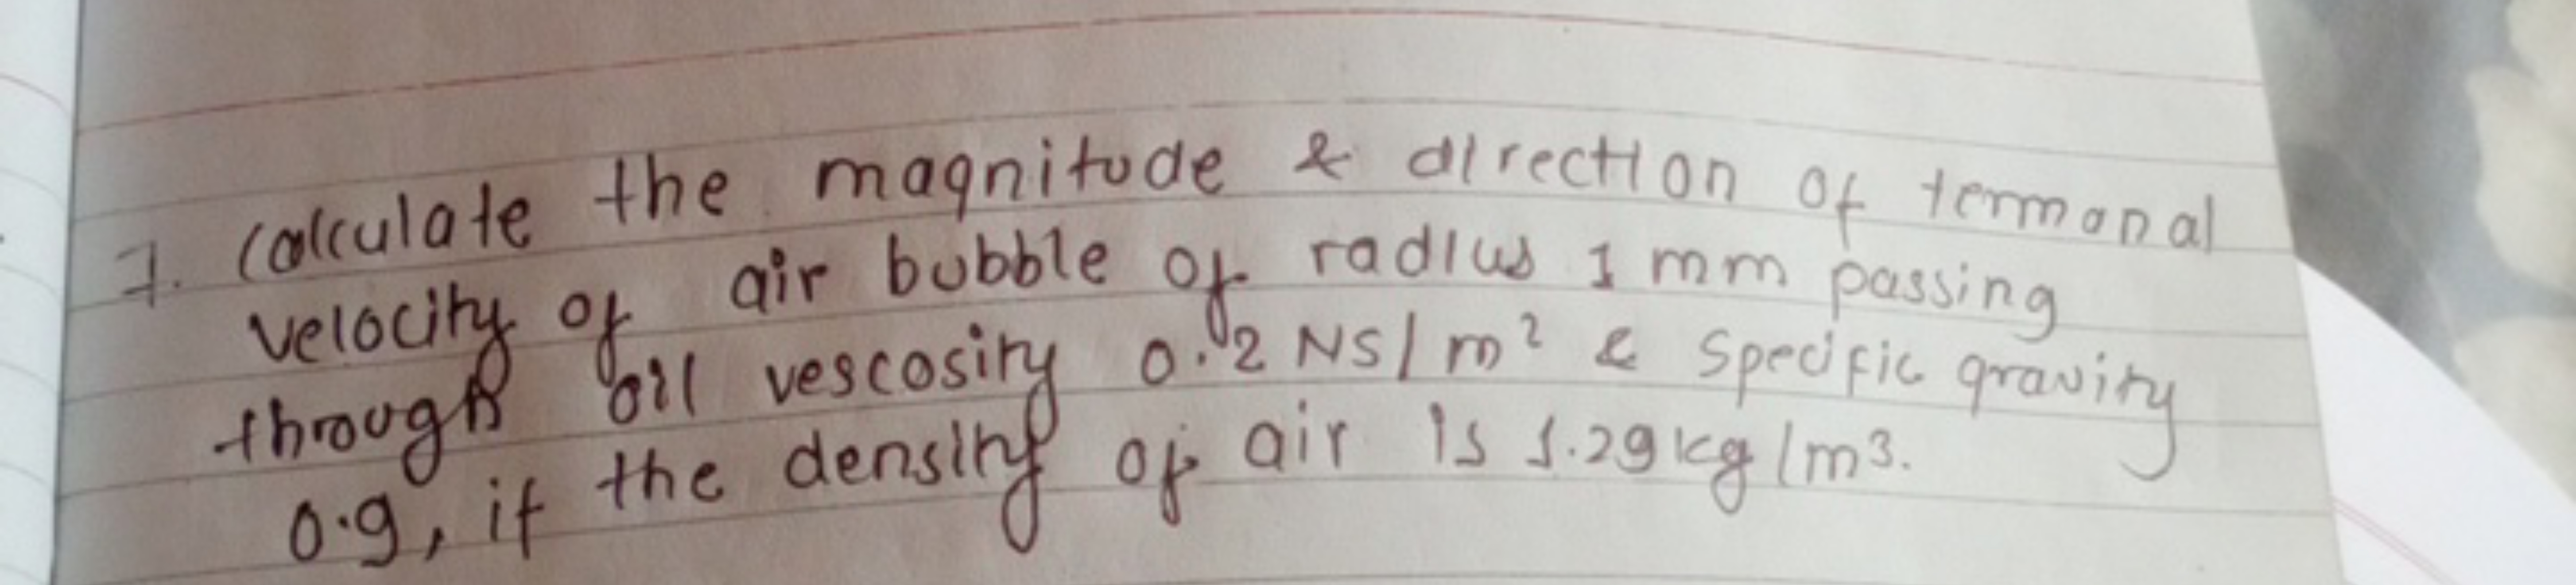 7. Calculate the magnitude & direction of termonal
velocity of air bubble of radius 1 mm passing
through oil vescosity 0.2 NS/m² & Specific gravity
0.9, if the density of air is 1.29 kg/m³.